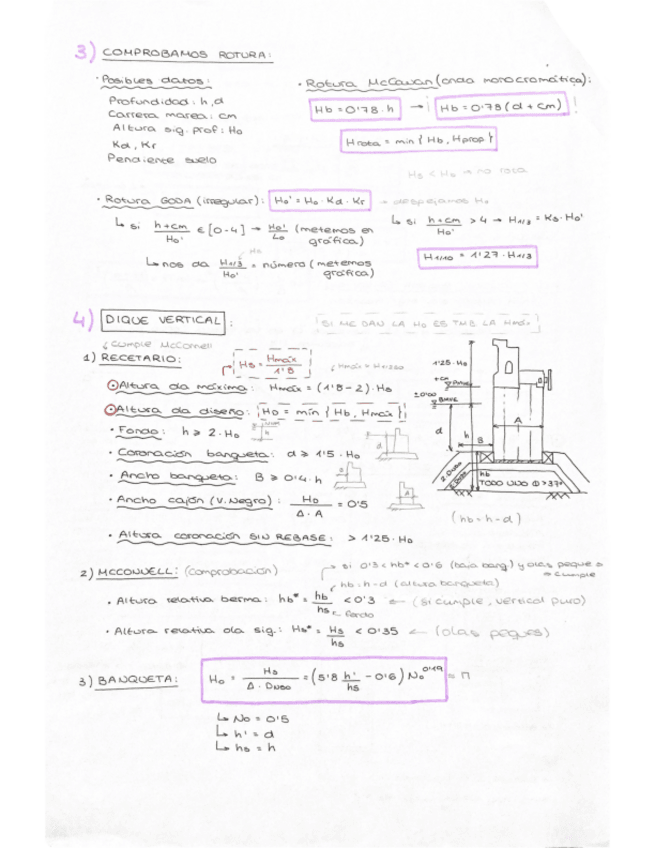 3) COMPROBAMOS ROTURA:
· Posibles datos:
Profundidad: h, d
Carrera marea: cm
Altura sig. prof: Ho
Kd, Kr
Pendiente suelo
· Rotura McCowan (onda monocromática):
Hb = 0'78 · h → ¡ Hb = 0'78 (d + cm) !
Hrota = min { Hb, Hprop }
Hs < Hb → no rota
· Rotura GODA (irregular): Ho' = Ho · Kd · Kr → despejamos Ho
↳ si h+cm / Ho' ∈ [0-4] → Ho' / Lo (metemos en gráfica)
↳ nos da H1/3 / Ho' = número (metemos gráfica)
↳ si h+cm / Ho' > 4 → H1/3 = Ks · Ho'
H1/10 = 1'27 · H1/3
4) DIQUE VERTICAL:
SI ME DAN LA HD ES TMB LA Hmáx
↓ cumple McConell
1) RECETARIO:
Hs = Hmáx / 1'8
Altura ola máxima: Hmáx = (1'8 - 2) · Hs
Altura ola diseño: HD = min { Hb, Hmáx }
· Fondo: h ≥ 2 · HD
· Coronación banqueta: d ≥ 1'5 · HD
· Ancho banqueta: B ≥ 0'4 · h
· Ancho cajón (V. Negro): HD / Δ · A = 0'5
· Altura coronación SIN REBASE: > 1'25 · HD
1'25 · HD
+cm
±0'00
BMVE
d
h
B
A
hb
TODO UNO
(hb = h - d)
2) MCCONNELL: (comprobación)
si 0'3 < hb* < 0'6 (baja banq) y olas peque → cumple
hb = h - d (altura banqueta)
· Altura relativa berma: hb* = hb / hs < 0'3 ← (si cumple, vertical puro)
← fondo
· Altura relativa ola sig.: Hs* = Hs / hs < 0'35 ← (olas peques)
3) BANQUETA: HD = Hs / Δ · Dn50 = (5'8 h' / hs - 0'6) No^0'19 = n
↳ No = 0'5
↳ h' = d
↳ hs = h